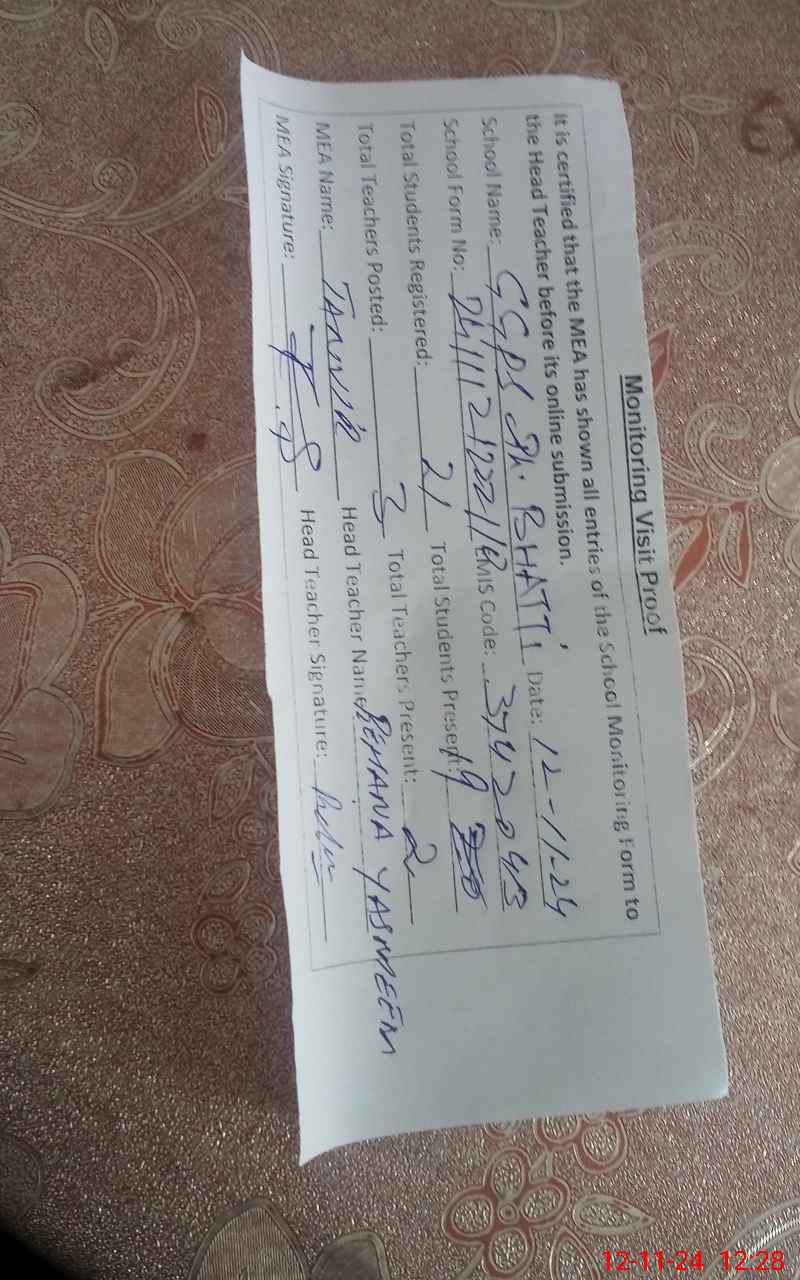 Monitoring Visit Proof
It is certified that the MEA has shown all entries of the School Monitoring Form to
the Head Teacher before its online submission.
School Name: GGPS Ph. BHATTI Date: 12-11-24
School Form No: EMIS Code: 37420413
Total Students Registered: 21 Total Students Present: 19
Total Teachers Posted: 3 Total Teachers Present: 2
MEA Name: TANVIR Head Teacher Name REHANA YASMEEN
MEA Signature: Head Teacher Signature:
12-11-24 12:28